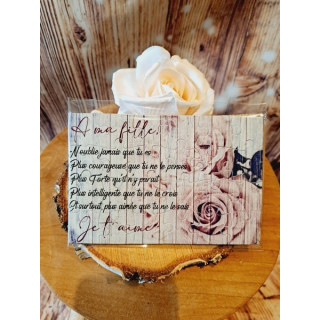 A ma fille,
N'oublie jamais que tu es
Plus courageuse que tu ne le penses
Plus Forte qu'il n'y parait
Plus intelligente que tu ne le crois
Et surtout plus aimée que tu ne le sais
Je t'aime